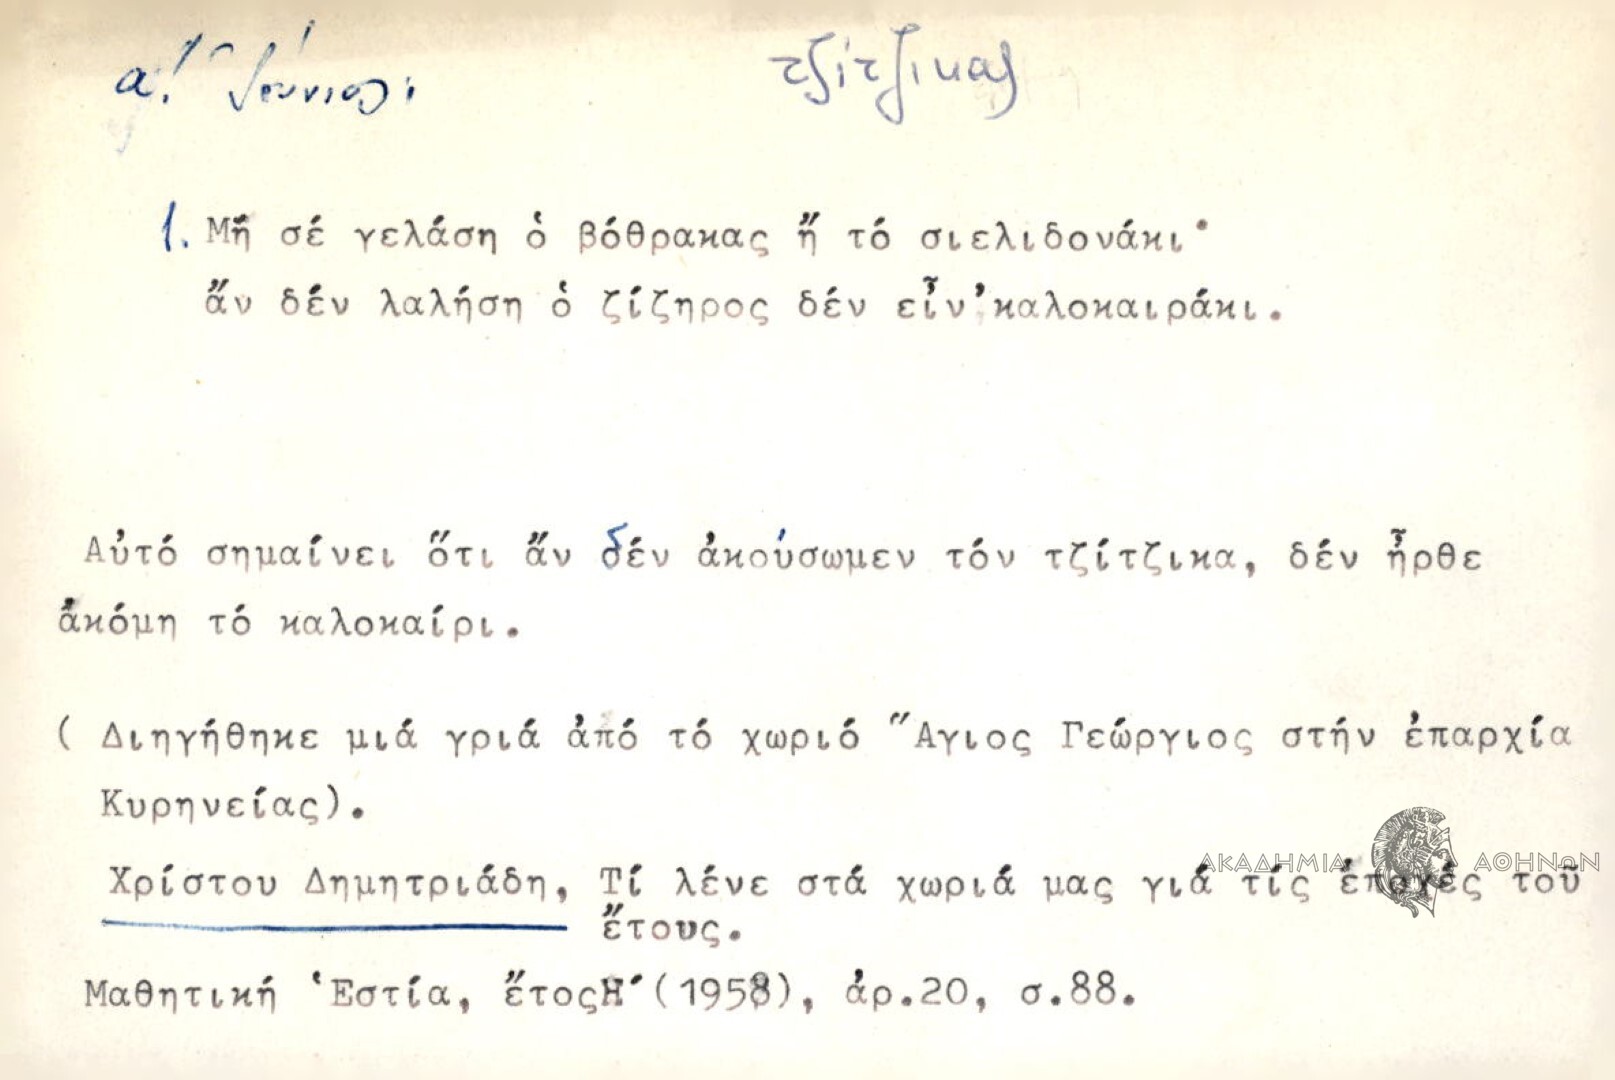 α! Ἰούνιος.
τζίτζικας
1. Μή σέ γελάση ὁ βόθρακας ἤ τό σιελιδονάκι·
ἄν δέν λαλήση ὁ ζίζηρος δέν εἶν' καλοκαιράκι.
Αὐτό σημαίνει ὅτι ἄν δέν ἀκούσωμεν τόν τζίτζικα, δέν ἦρθε
ἀκόμη τό καλοκαίρι.
( Διηγήθηκε μιά γριά ἀπό τό χωριό Ἅγιος Γεώργιος στήν ἐπαρχία
Κυρηνείας).
ΑΚΑΔΗΜΙΑ ΑΘΗΝΩΝ
Χρίστου Δημητριάδη, Τί λένε στά χωριά μας γιά τίς ἐποχές τοῦ
ἔτους.
Μαθητική Ἑστία, ἔτοςΗ´(1958), ἀρ.20, σ.88.